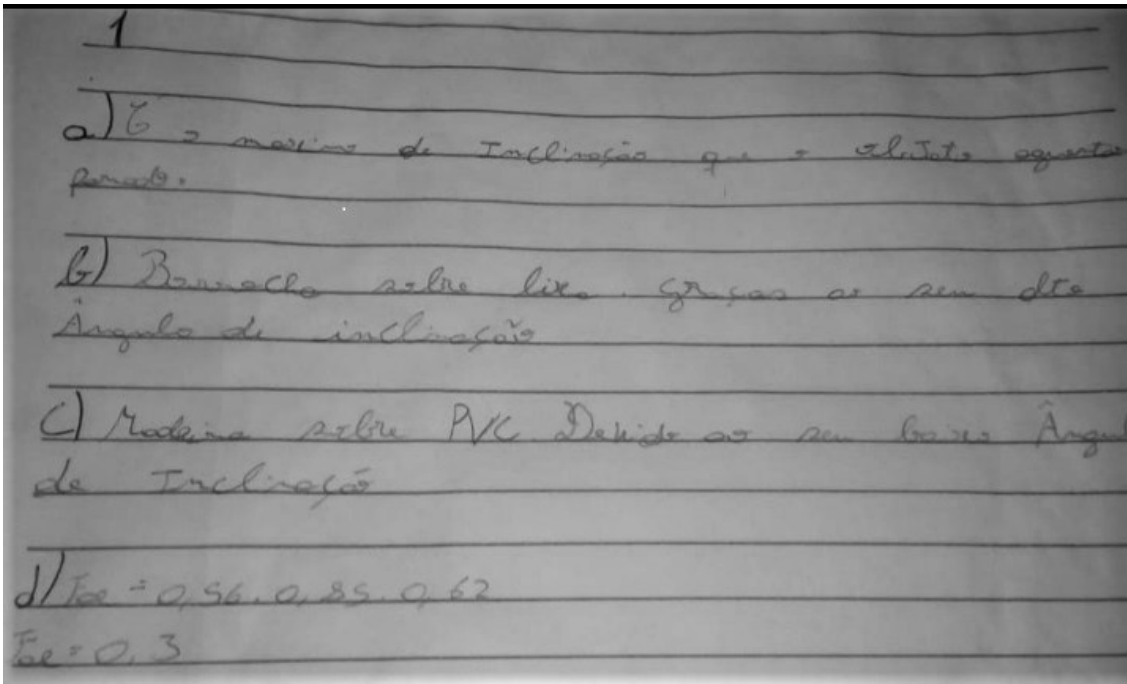 1
a) É o maximo de Inclinação que o obJeto aguenta
parado.
b) Borracha sobre lixa. Graças ao seu alto
Ângulo de inclinação
C) Madeira sobre PVC Devido ao seu baixo Ângul
de Inclinação
d) Fae = 0,56.0,85.0,62
Fae = 0,3